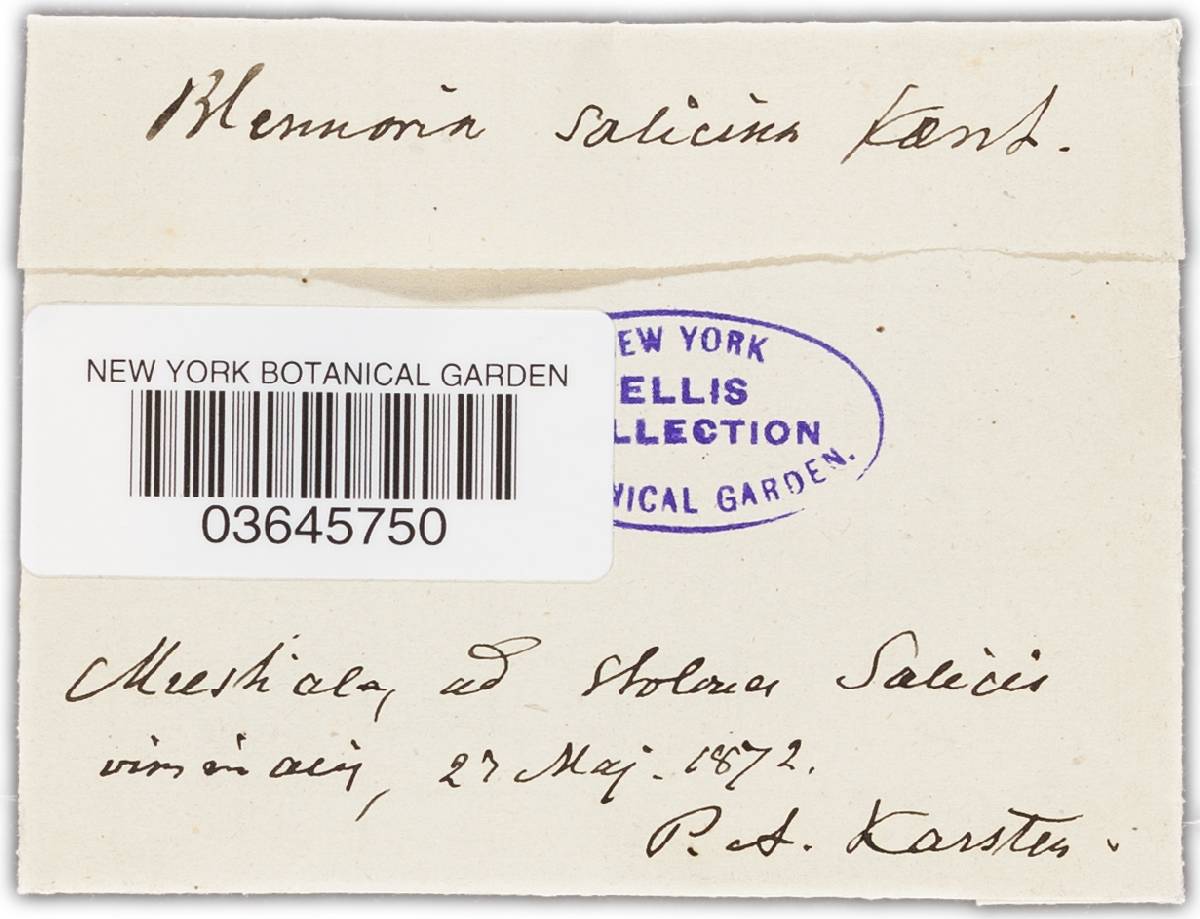 Blennoria salicina Karst.
NEW YORK BOTANICAL GARDEN
03645750
EW YORK
ELLIS
LLECTION
NICAL GARDEN.
Mustiala, ad stolones Salicis
viminalis, 27 Maj. 1872.
P. A. Karsten.